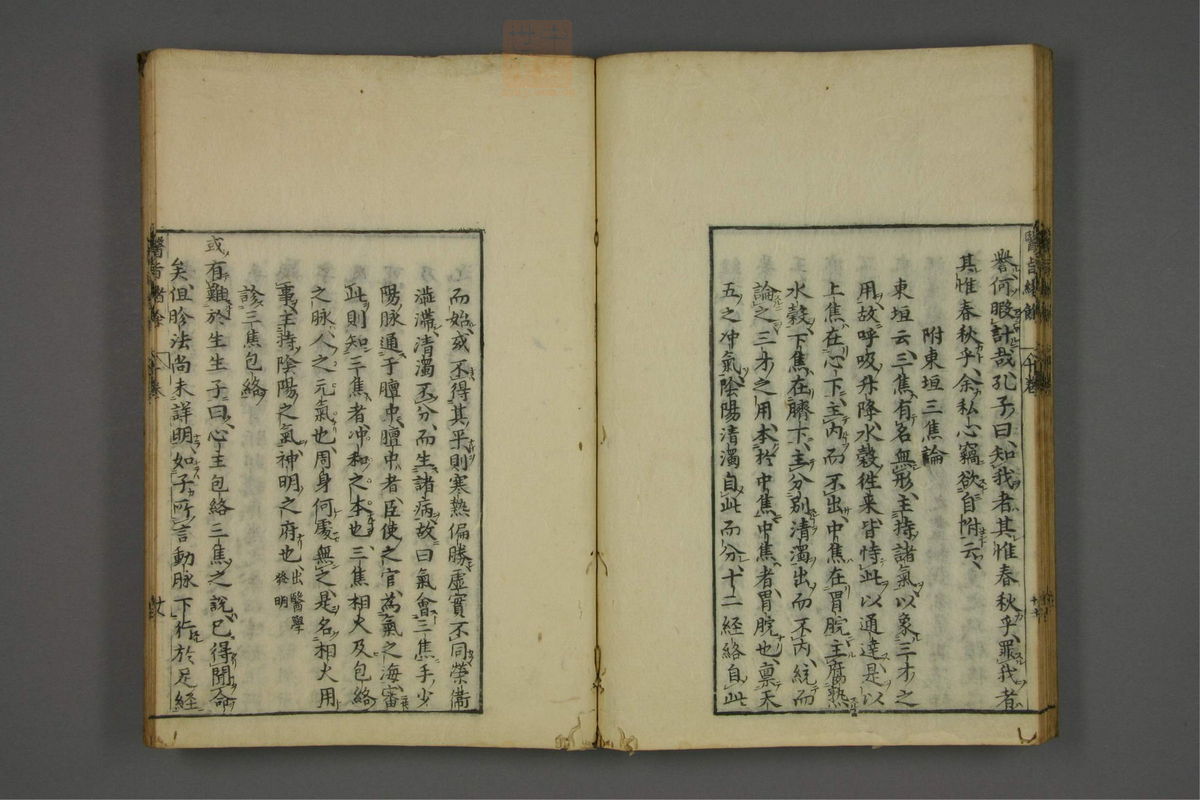 譽何暇計哉孔子曰知我者其惟春秋乎罪我者
其惟春秋乎余私心竊欲自附云
附東垣三焦論
東垣云三焦有名無形主持諸氣以象三才之
用故呼吸升降水穀徃来皆恃此以通達是以
上焦在心下主内而不出中焦在胃脘主腐熟
水穀下焦在臍下主分別清濁出而不内統而
論之三才之用本於中焦中焦者胃脘也禀天
五之冲氣陰陽清濁自此而分十二経絡自此
而始或不得其平則寒熱偏勝虚實不同榮衞
澁滯清濁不分而生諸病故曰氣會三焦手少
陽脉通于膻中膻中者臣使之官為氣之海審
此則知三焦者冲和之本也三焦相火及包絡
之脉人之元氣也周身何處無之是名相火用
事主持陰陽之氣神明之府也出醫學發明
診三焦包絡
或有難於生生子曰心主包絡三焦之説已得聞命
矣但胗法尚未詳明如子所言動脉下行於足経
醫旨緒餘 上卷